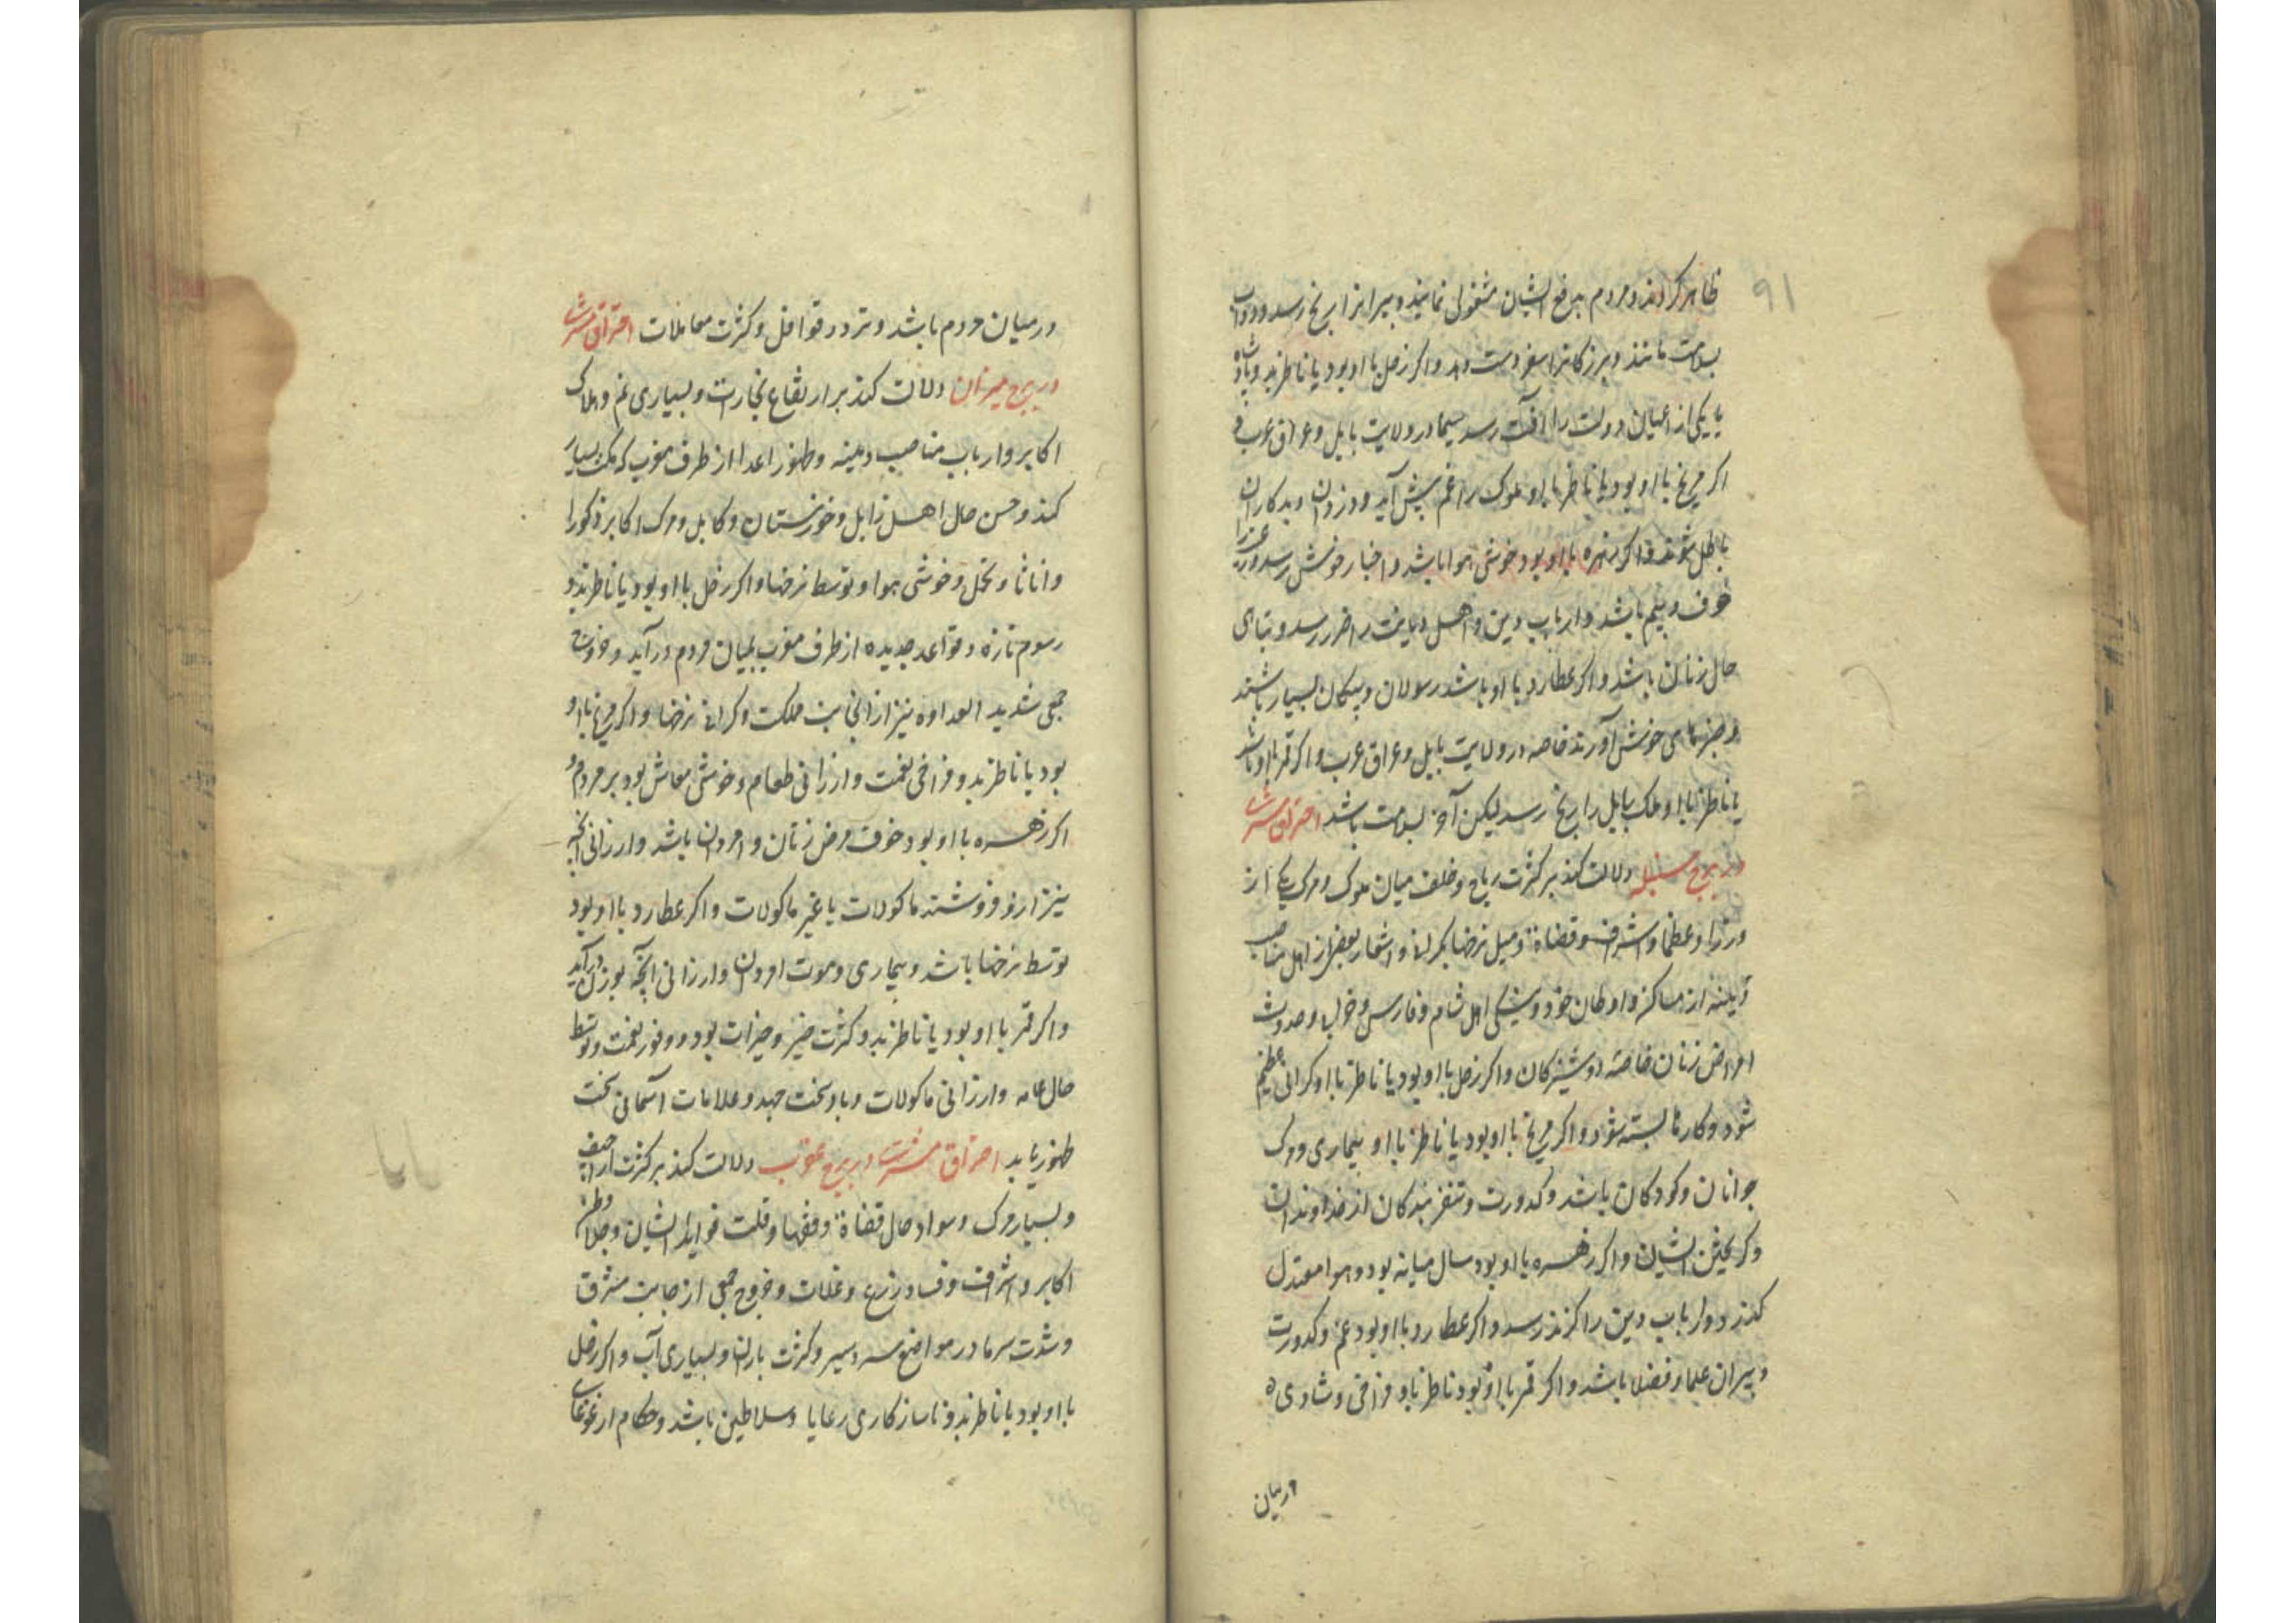 ۹۱
ظاهر کردند و مردم برفع ایشان مشغولی نمایند و پیرانرا رنج رسد و دواب
بسلامت مانند و بزرکانرا سفر دست دهد و اکر زحل با او بود یا ناظر بدو پادشاه
یا یکی از اعیان دولت را آفت رسد سیما در ولایت بابل و عراق عرب و
اکر مریخ با او بود یا ناظر باو ملوک را غم پیش آید و دزدان و بدکاران
باطل شوند و اکر زهره با او بود خوشی هوا باشد و اخبار خوش رسد و
خوف و بیم باشد و ارباب دین و اهل دیانت را ضرر رسد و تباهی
حال زنان باشد و اکر عطارد با او باشد رسولان و پیکان بسیار باشند
و خبرهای خوش آورند خاصه در ولایت بابل و عراق عرب و اکر قمر با او باشد
یا ناظر با او ملک بابل را رنج رسد لیکن آخر بسلامت باشد احتراق مشتری
در برج سنبله دلالت کند بر کثرت ریاح و خلف میان ملوک و مرک یکی از
وزرا و عظما و اشراف و قضاة و میل نرخها بکرانی و بعضی از اهل مناصب
دینیه از مساکن و اوطان خود و اهل شام و فارس و حدوث
امراض زنان خاصه دوشیزکان و اکر زحل با او بود یا ناظر با او کرانی عظیم
شود و کارها بسته شود و اکر مریخ با او بود یا ناظر با او بیماری و مرک
جوانان و کودکان باشد و کدورت و تنفر بندکان از خداوندان
و کریختن ایشان و اکر زهره با او بود سال میانه بود و هوا معتدل
کذرد و ارباب دین را کزند رسد و اکر عطارد با او بود غم و کدورت
دبیران علما و فضلا باشد و اکر قمر با او بود ناظر باو فراخی و شادی
درمیان
درمیان مردم باشد و تردد قوافل و کثرت معاملات احتراق مشتری
در برج میزان دلالت کند بر ارتفاع بخارات و بسیاری غم و هلاک
اکابر و ارباب مناصب دینیه و ظهور اعدا از طرف مغرب که مکث بسیار
کند و حسن حال اهل زابل و خوزستان و کابل و مرک اکابر ذکورا
و اناثا و خوشی هوا و توسط نرخها و اکر زحل با او بود یا ناظر بدو
رسوم تازه و قواعد جدیده از طرف مغرب بمیان مردم درآید و خروج
جمعی شدید العداوه نیز از آنجانب مملکت و کرانی نرخها و اکر مریخ با او
بود یا ناظر بدو فراخی نعمت و ارزانی طعام و خوشی معاش بود بر مردم و
اکر زهره با او بود خوف مرض زنان و امردان باشد و ارزانی آنچه
نیز ازو فروشند ماکولات یا غیر ماکولات و اکر عطارد با او بود
توسط نرخها باشد و بیماری و موت امردان و ارزانی آنچه بوزن درآید
و اکر قمر با او بود یا ناظر بدو کثرت خیر و خیرات بود و وفور نعمت و توسط
حال عامه و ارزانی ماکولات و باد سخت جهد و علامات آسمانی سخت
ظهور یابد احتراق مشتری در برج عقرب دلالت کند بر کثرت اراجیف
و بسیار مرک و سواد حال قضاة و فقها و قلت فواید ایشان و جلاء وطن
اکابر و اشراف و فساد زرع و غلات و خروج جمعی از جانب مشرق
و شدت سرما در مواضع سردسیر و کثرت باران و بسیاری آب و اکر زحل
با او بود یا ناظر بدو ناسازکاری رعایا و سلاطین باشد و حکام از غوغای